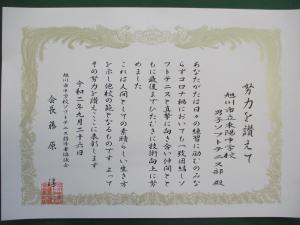 努力を讃えて
旭川市立東陽中学校
男子ソフトテニス部 殿
あなたがたは日々の練習に励むのみな
らずコロナ禍においても一致団結しソ
フトテニスと真摯に向き合い仲間とと
もに最後までひたむきに技術向上に努
めました
これは人間としての素晴らしい生き方
を示し他校の範となるものです よって
その努力を讃えここに表彰します
令和二年九月二十六日
旭川市中学校ソフトテニス指導者協議会
会長 藤原